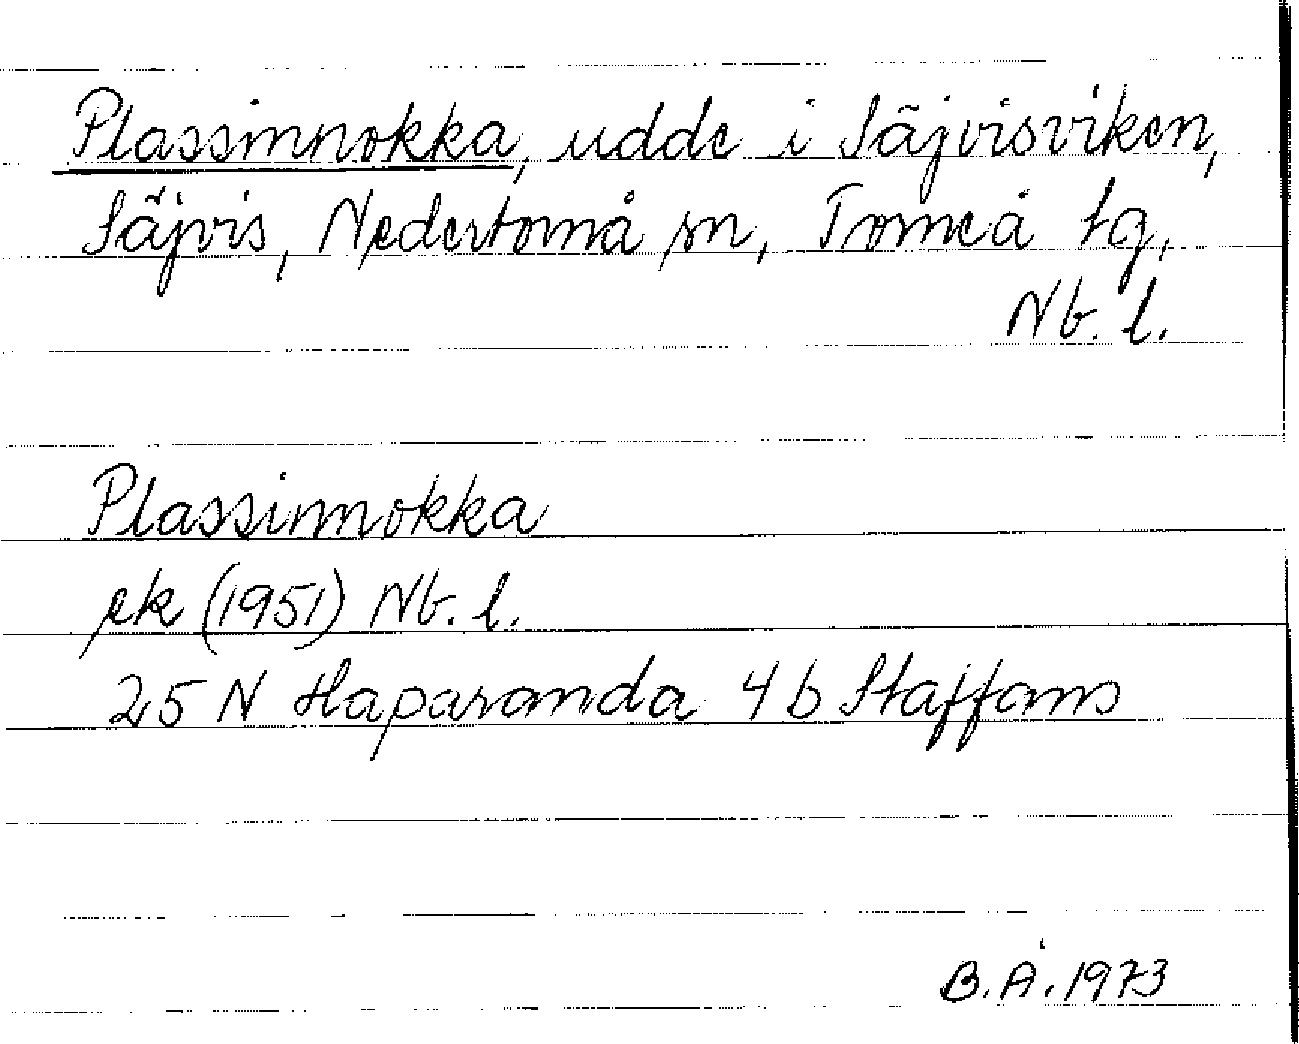 Plassinnokka, udde i Säjvisviken,
Säjvis, Nedertorneå sn, Torneå tg,
Nb. l.
Plassinnokka
ek (1951) Nb. l.
25 N Haparanda 4 b Staffans
B.Å. 1973